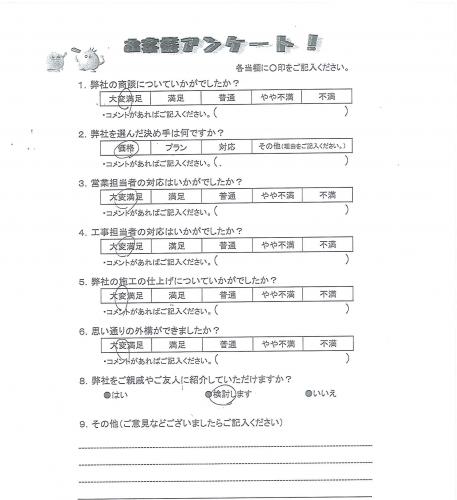 お客様アンケート！
各当欄に〇印をご記入ください。
1. 弊社の商談についていかがでしたか？
大変満足 満足 普通 やや不満 不満
・コメントがあればご記入ください。( )
2. 弊社を選んだ決め手は何ですか？
価格 プラン 対応 その他（理由をご記入ください。）
・コメントがあればご記入ください。( )
3. 営業担当者の対応はいかがでしたか？
大変満足 満足 普通 やや不満 不満
・コメントがあればご記入ください。( )
4. 工事担当者の対応はいかがでしたか？
大変満足 満足 普通 やや不満 不満
・コメントがあればご記入ください。( )
5. 弊社の施工の仕上げについていかがでしたか？
大変満足 満足 普通 やや不満 不満
・コメントがあればご記入ください。( )
6. 思い通りの外構ができましたか？
大変満足 満足 普通 やや不満 不満
・コメントがあればご記入ください。( )
8. 弊社をご親戚やご友人に紹介していただけますか？
●はい ●検討します ●いいえ
9. その他(ご意見などございましたらご記入ください)